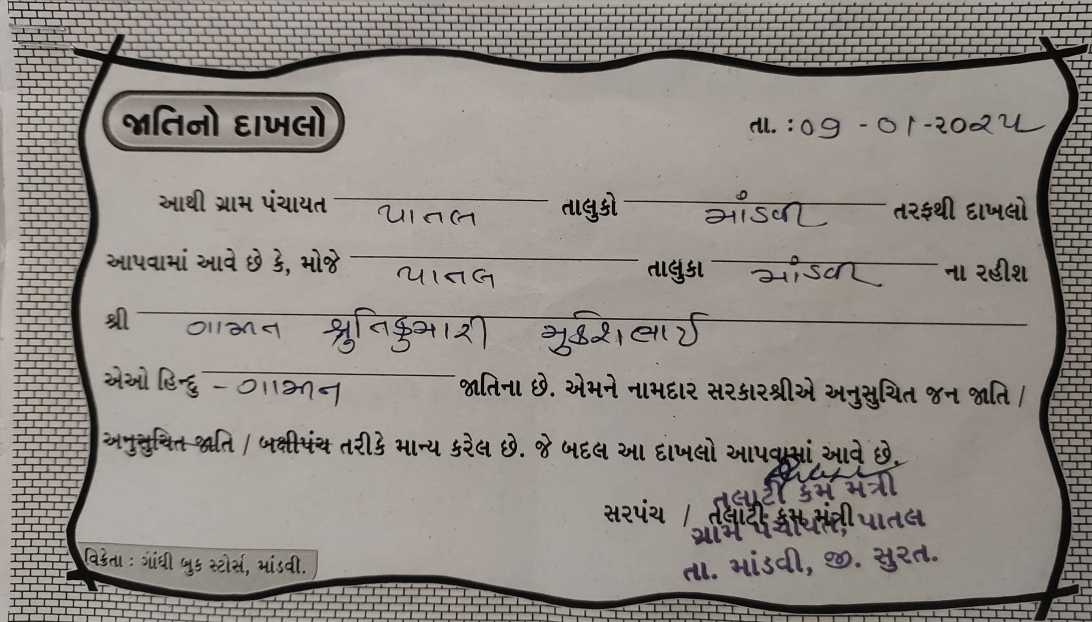 જાતિનો દાખલો
તા. : ૦૭ - ૦૧ - ૨૦૨૫
આથી ગ્રામ પંચાયત પાતલ તાલુકો માંડવી તરફથી દાખલો
આપવામાં આવે છે કે, મોજે પાતલ તાલુકા માંડવી ના રહીશ
શ્રી ગામીત શ્રુતિકુમારી મુકેશભાઈ
એઓ હિન્દુ - ગામીત જાતિના છે. એમને નામદાર સરકારશ્રીએ અનુસુચિત જન જાતિ /
અનુસુચિત જાતિ / બક્ષીપંચ તરીકે માન્ય કરેલ છે. જે બદલ આ દાખલો આપવામાં આવે છે.
સરપંચ / તલાટી કમ મંત્રી
તલાટી કમ મંત્રી
ગ્રામ પંચાયત, પાતલ
તા. માંડવી, જી. સુરત.
વિક્રેતા : ગાંધી બુક સ્ટોર્સ, માંડવી.